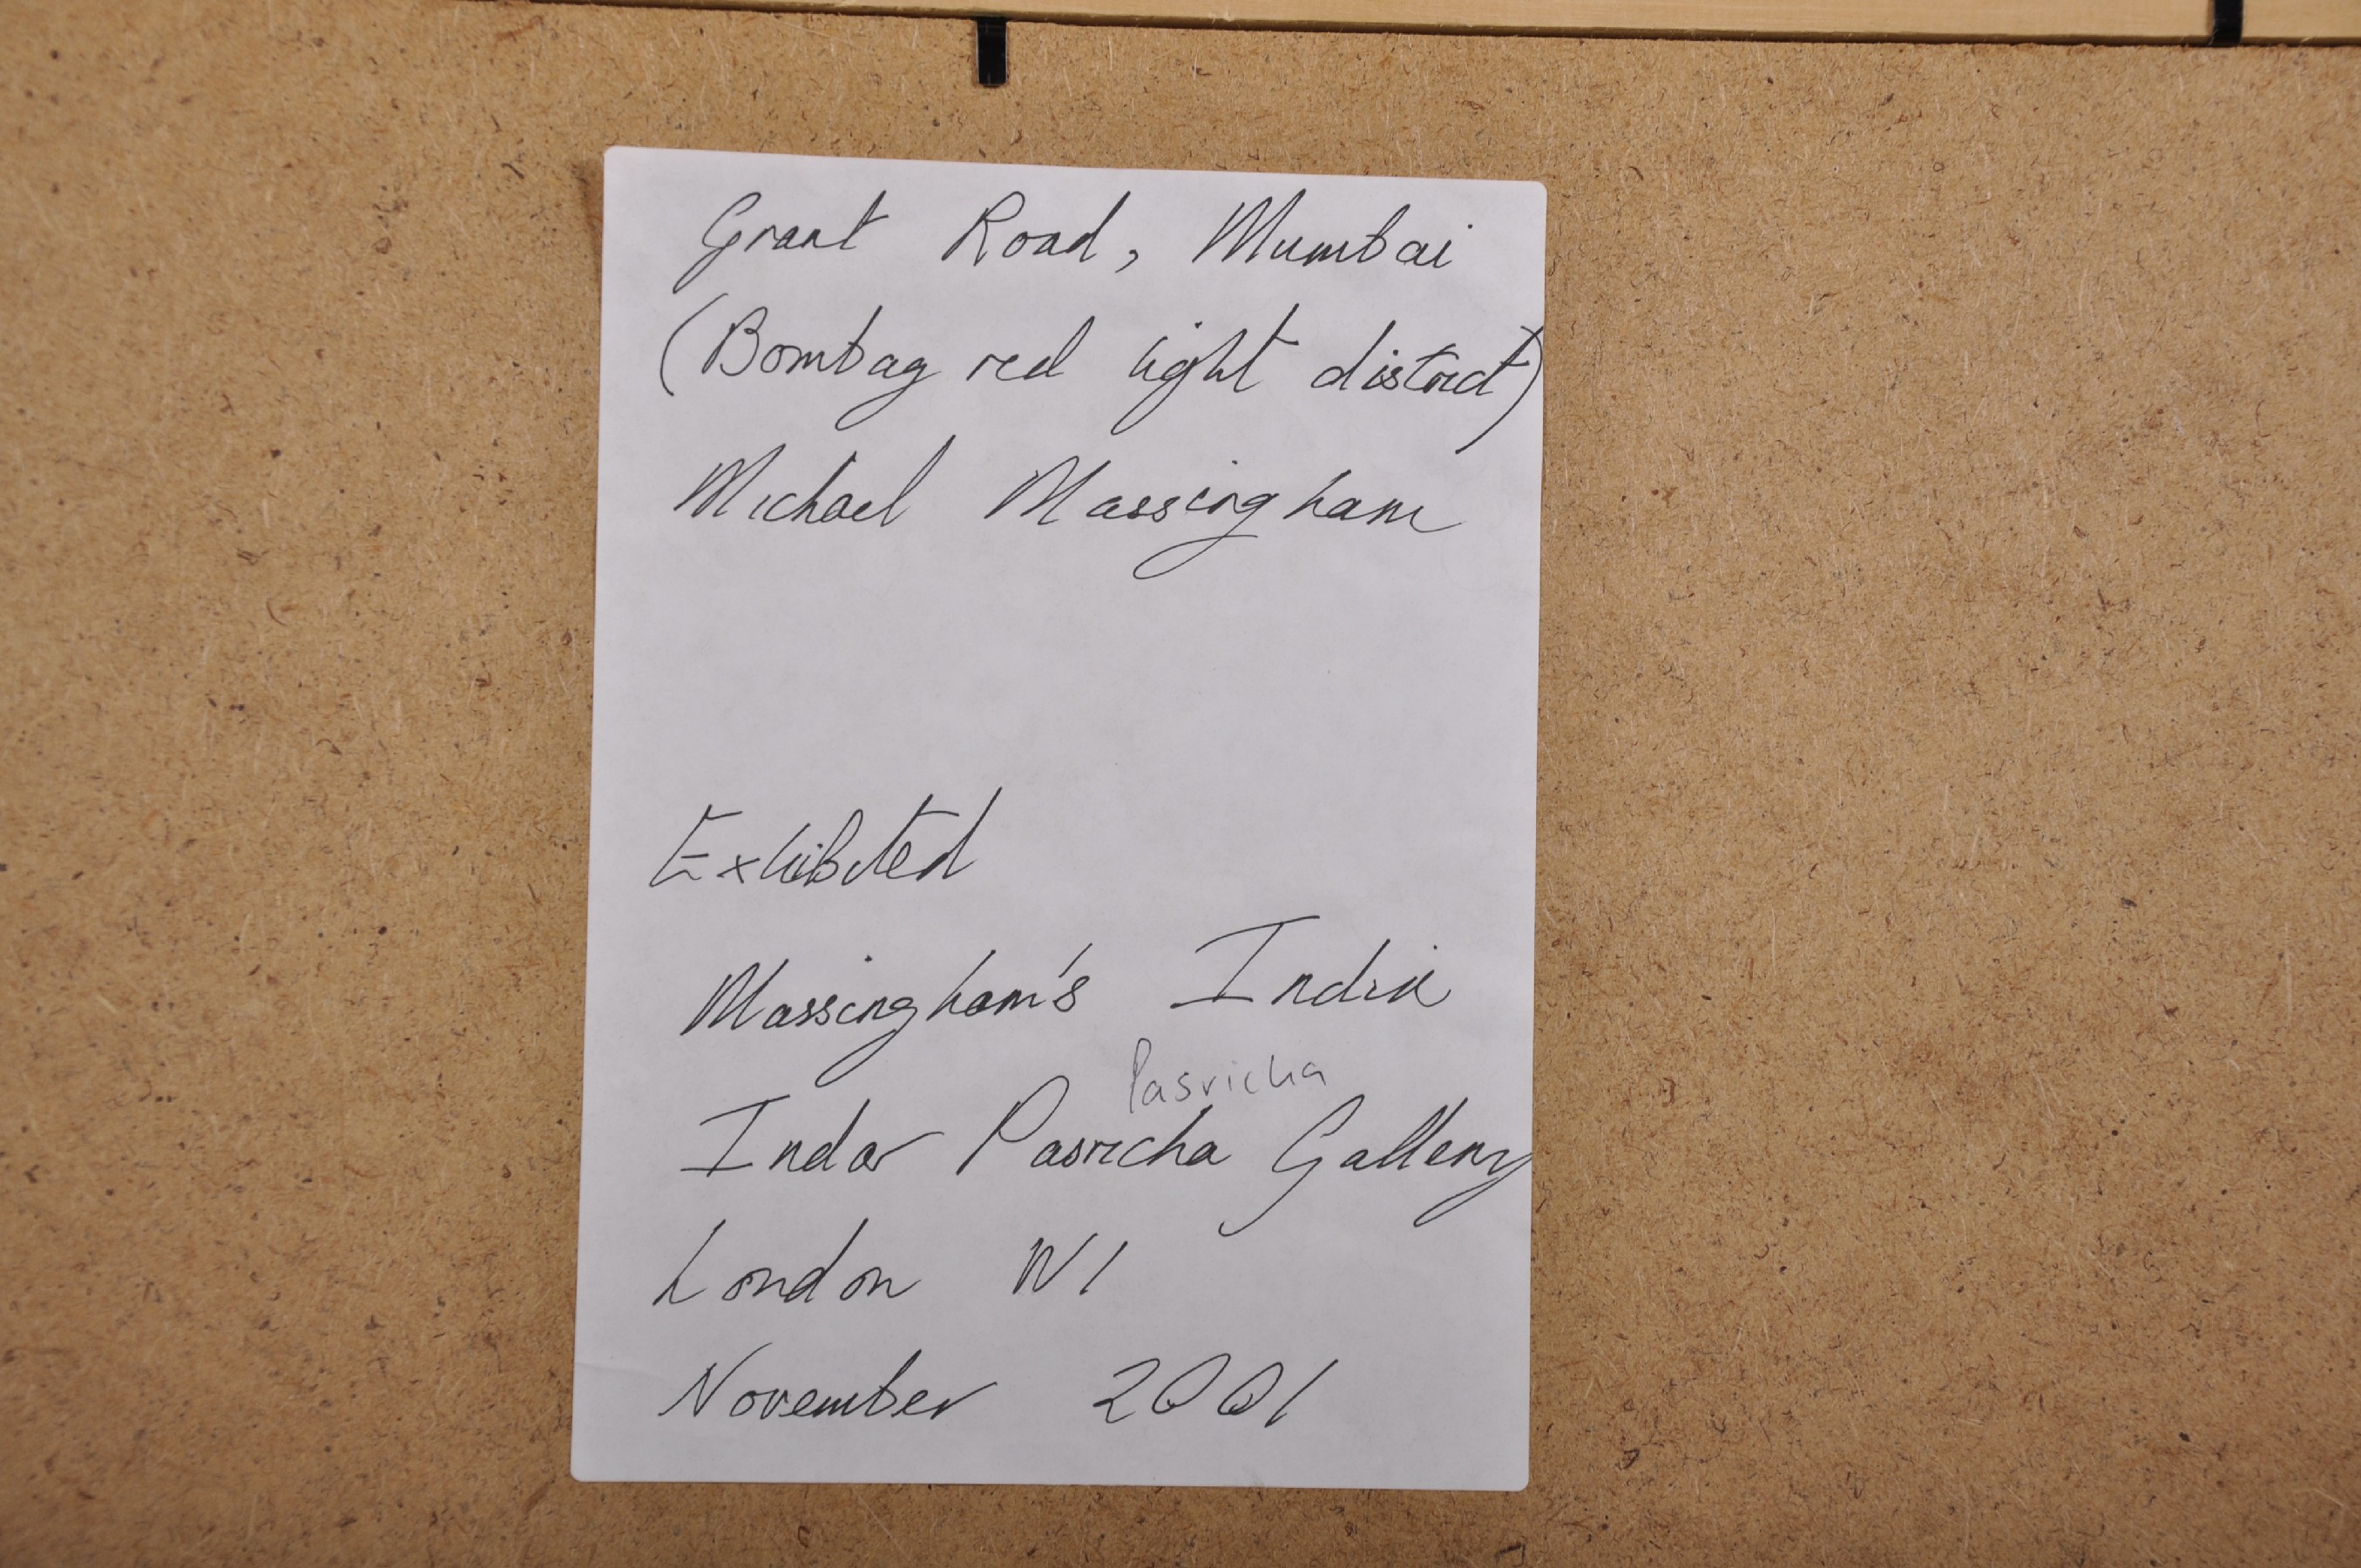 Grant Road, Mumbai
(Bombay red light district)
Michael Massingham
Exhibited
Massingham's India
Pasricha
Indar Pasricha Gallery
London W1
November 2001